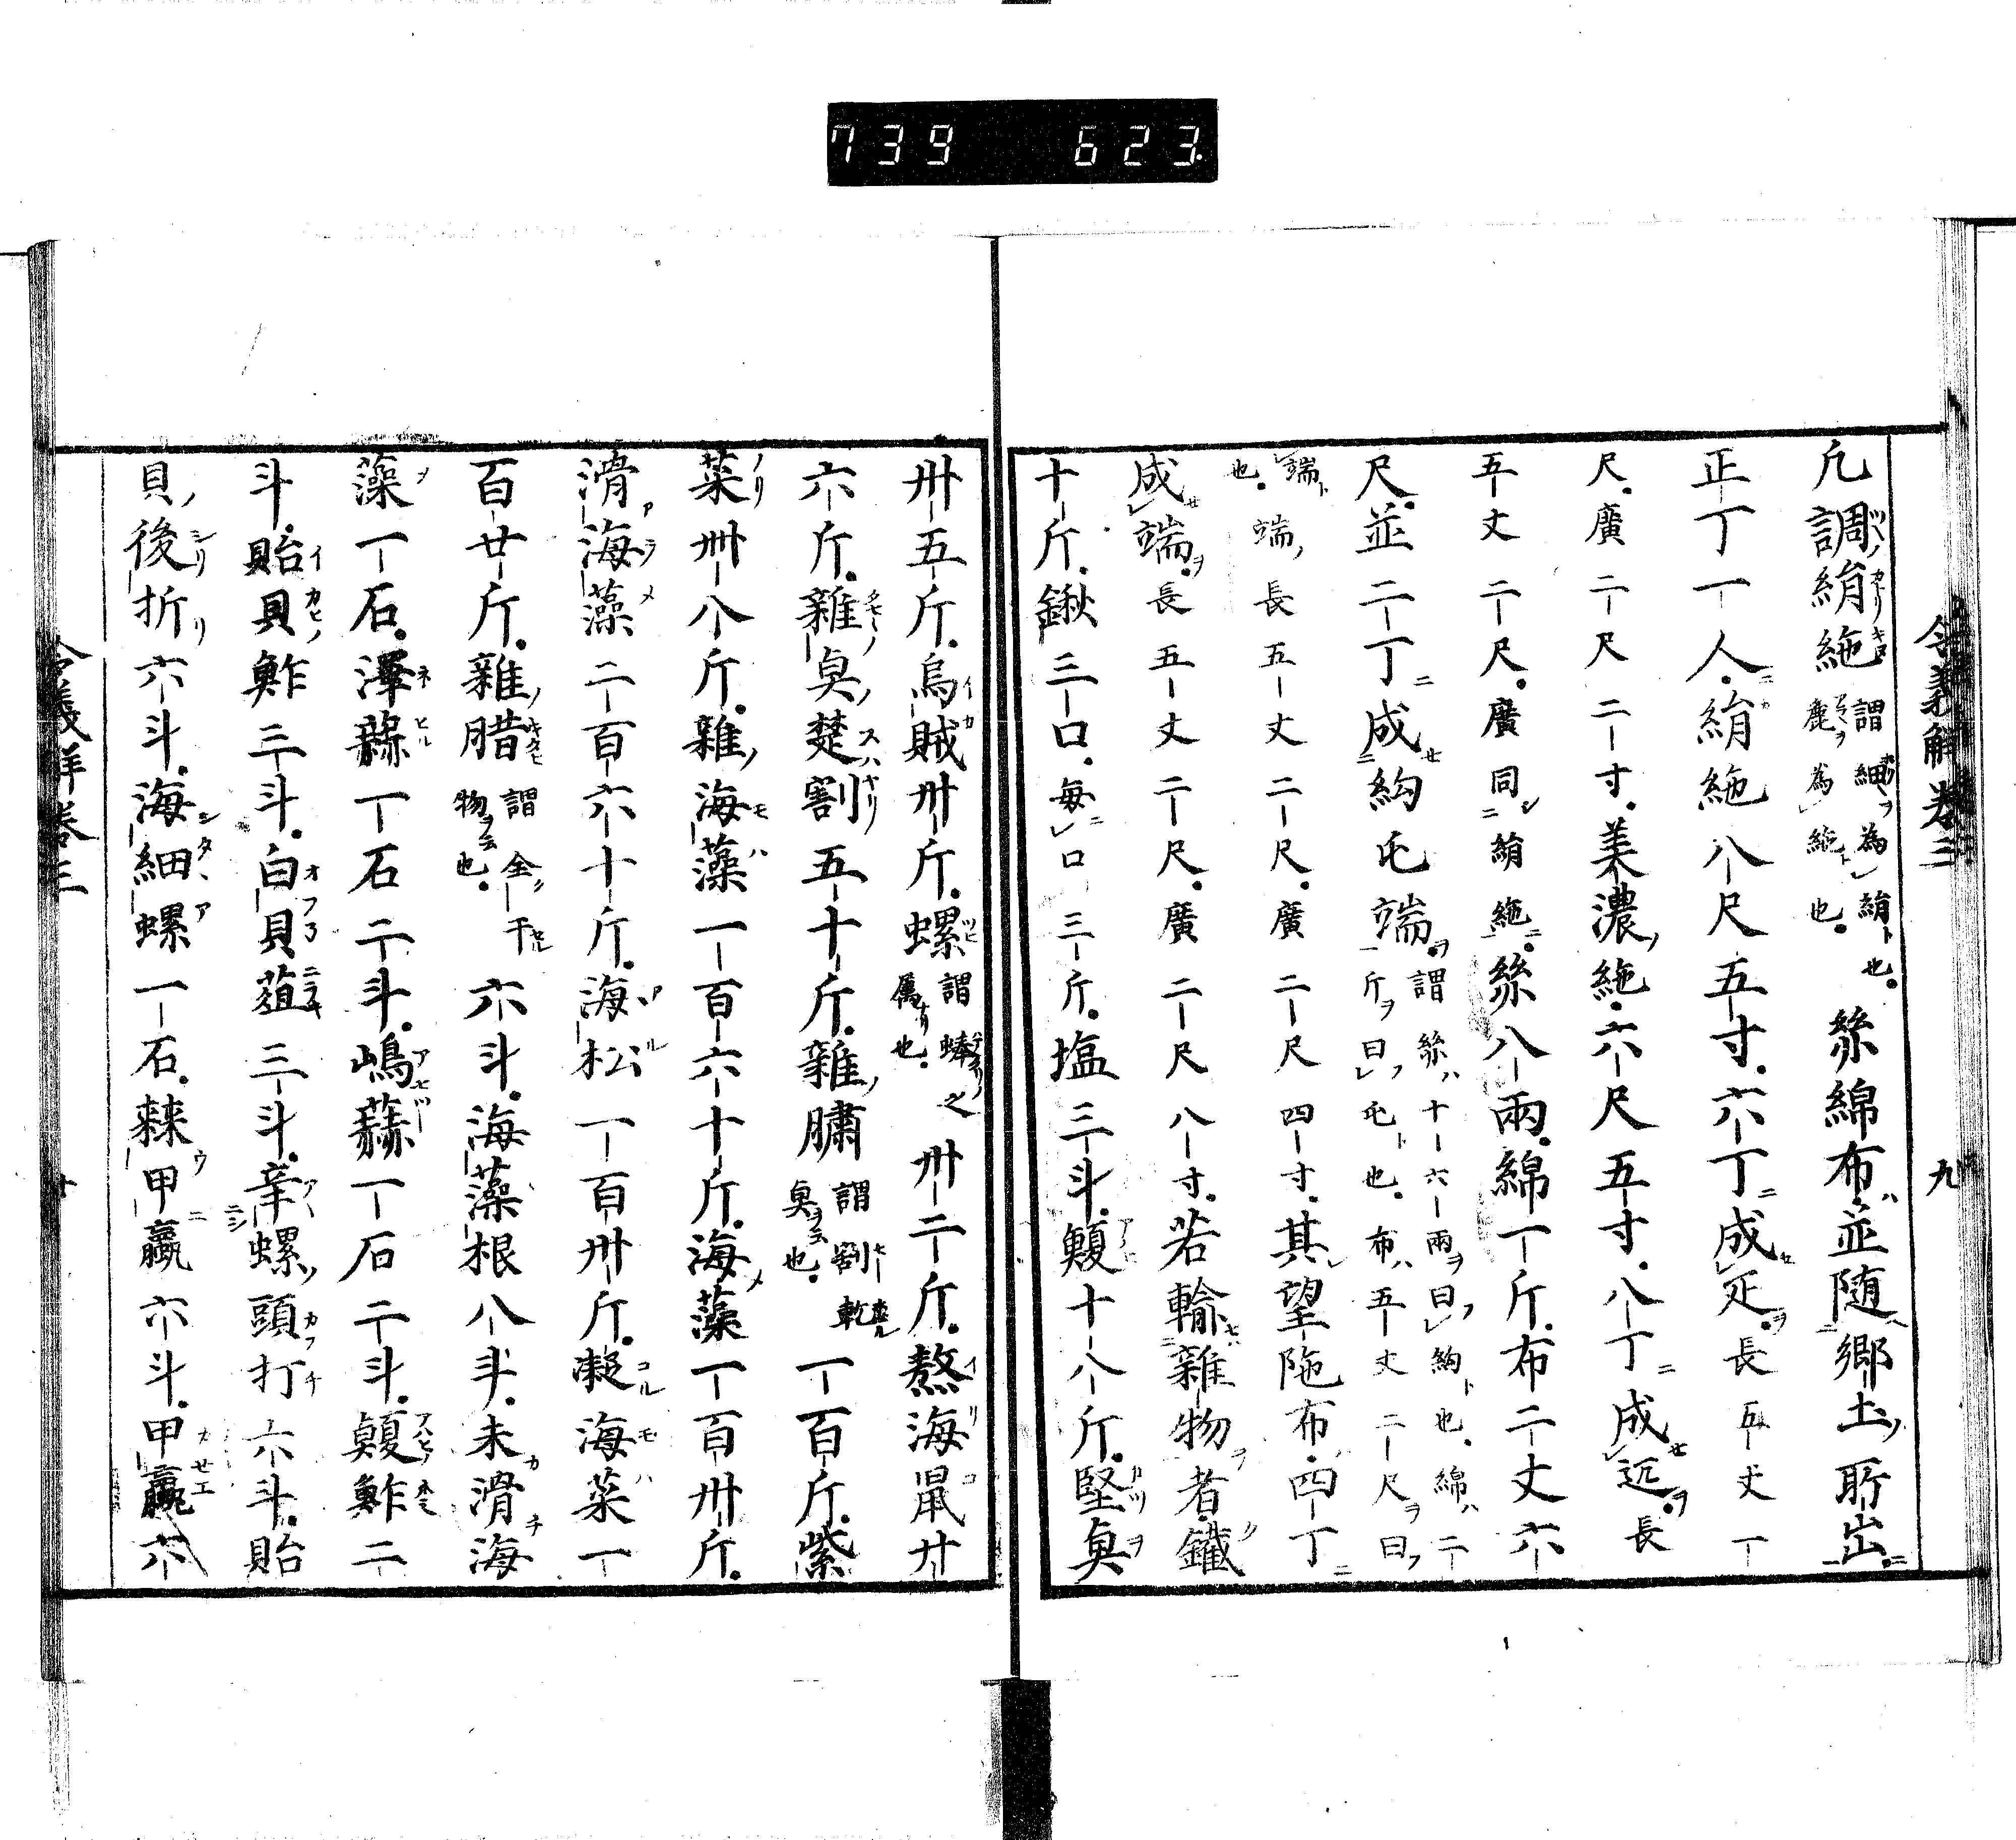 739 623.
令義解卷三 九
凢調絹絁謂細爲絹也。麁爲絁也。絲綿布。並隨郷土所出。
正丁一人。絹絁八尺五寸。六丁成疋。長五丈一
尺。廣二尺二寸。美濃絁。六尺五寸。八丁成疋。長
五丈二尺。廣同絹絁。絲八兩。綿一斤。布二丈六
尺。並二丁成絇屯端。謂絲十六兩曰絇也。綿二斤曰屯也。布五丈二尺曰
端也。端長五丈二尺。廣二尺四寸。其望陁布。四丁
成端。長五丈二尺。廣二尺八寸。若輸雜物者。鐵
十斤。鍬三口。毎口三斤。塩三斗。鰒十八斤。堅魚
卅五斤。烏賊卅斤。螺謂蜯之属也。卅二斤。熬海鼠廿
六斤。雜魚楚割五十斤。雜𦠆謂割乾魚云也。一百斤。紫
菜卌八斤。雜海藻一百六十斤。海藻一百卅斤。
滑海藻二百六十斤。海松一百卅斤。凝海菜一
百廿斤。雜腊謂全干物云也。六斗。海藻根八斗。未滑海
藻一石。澤蒜一石二斗。嶋蒜一石二斗。鰒鮓二
斗。貽貝鮓三斗。白貝葅三斗。辛螺頭打六斗。貽
貝後折六斗。海細螺一石。棘甲蠃六斗。甲蠃六
令義解卷三 十